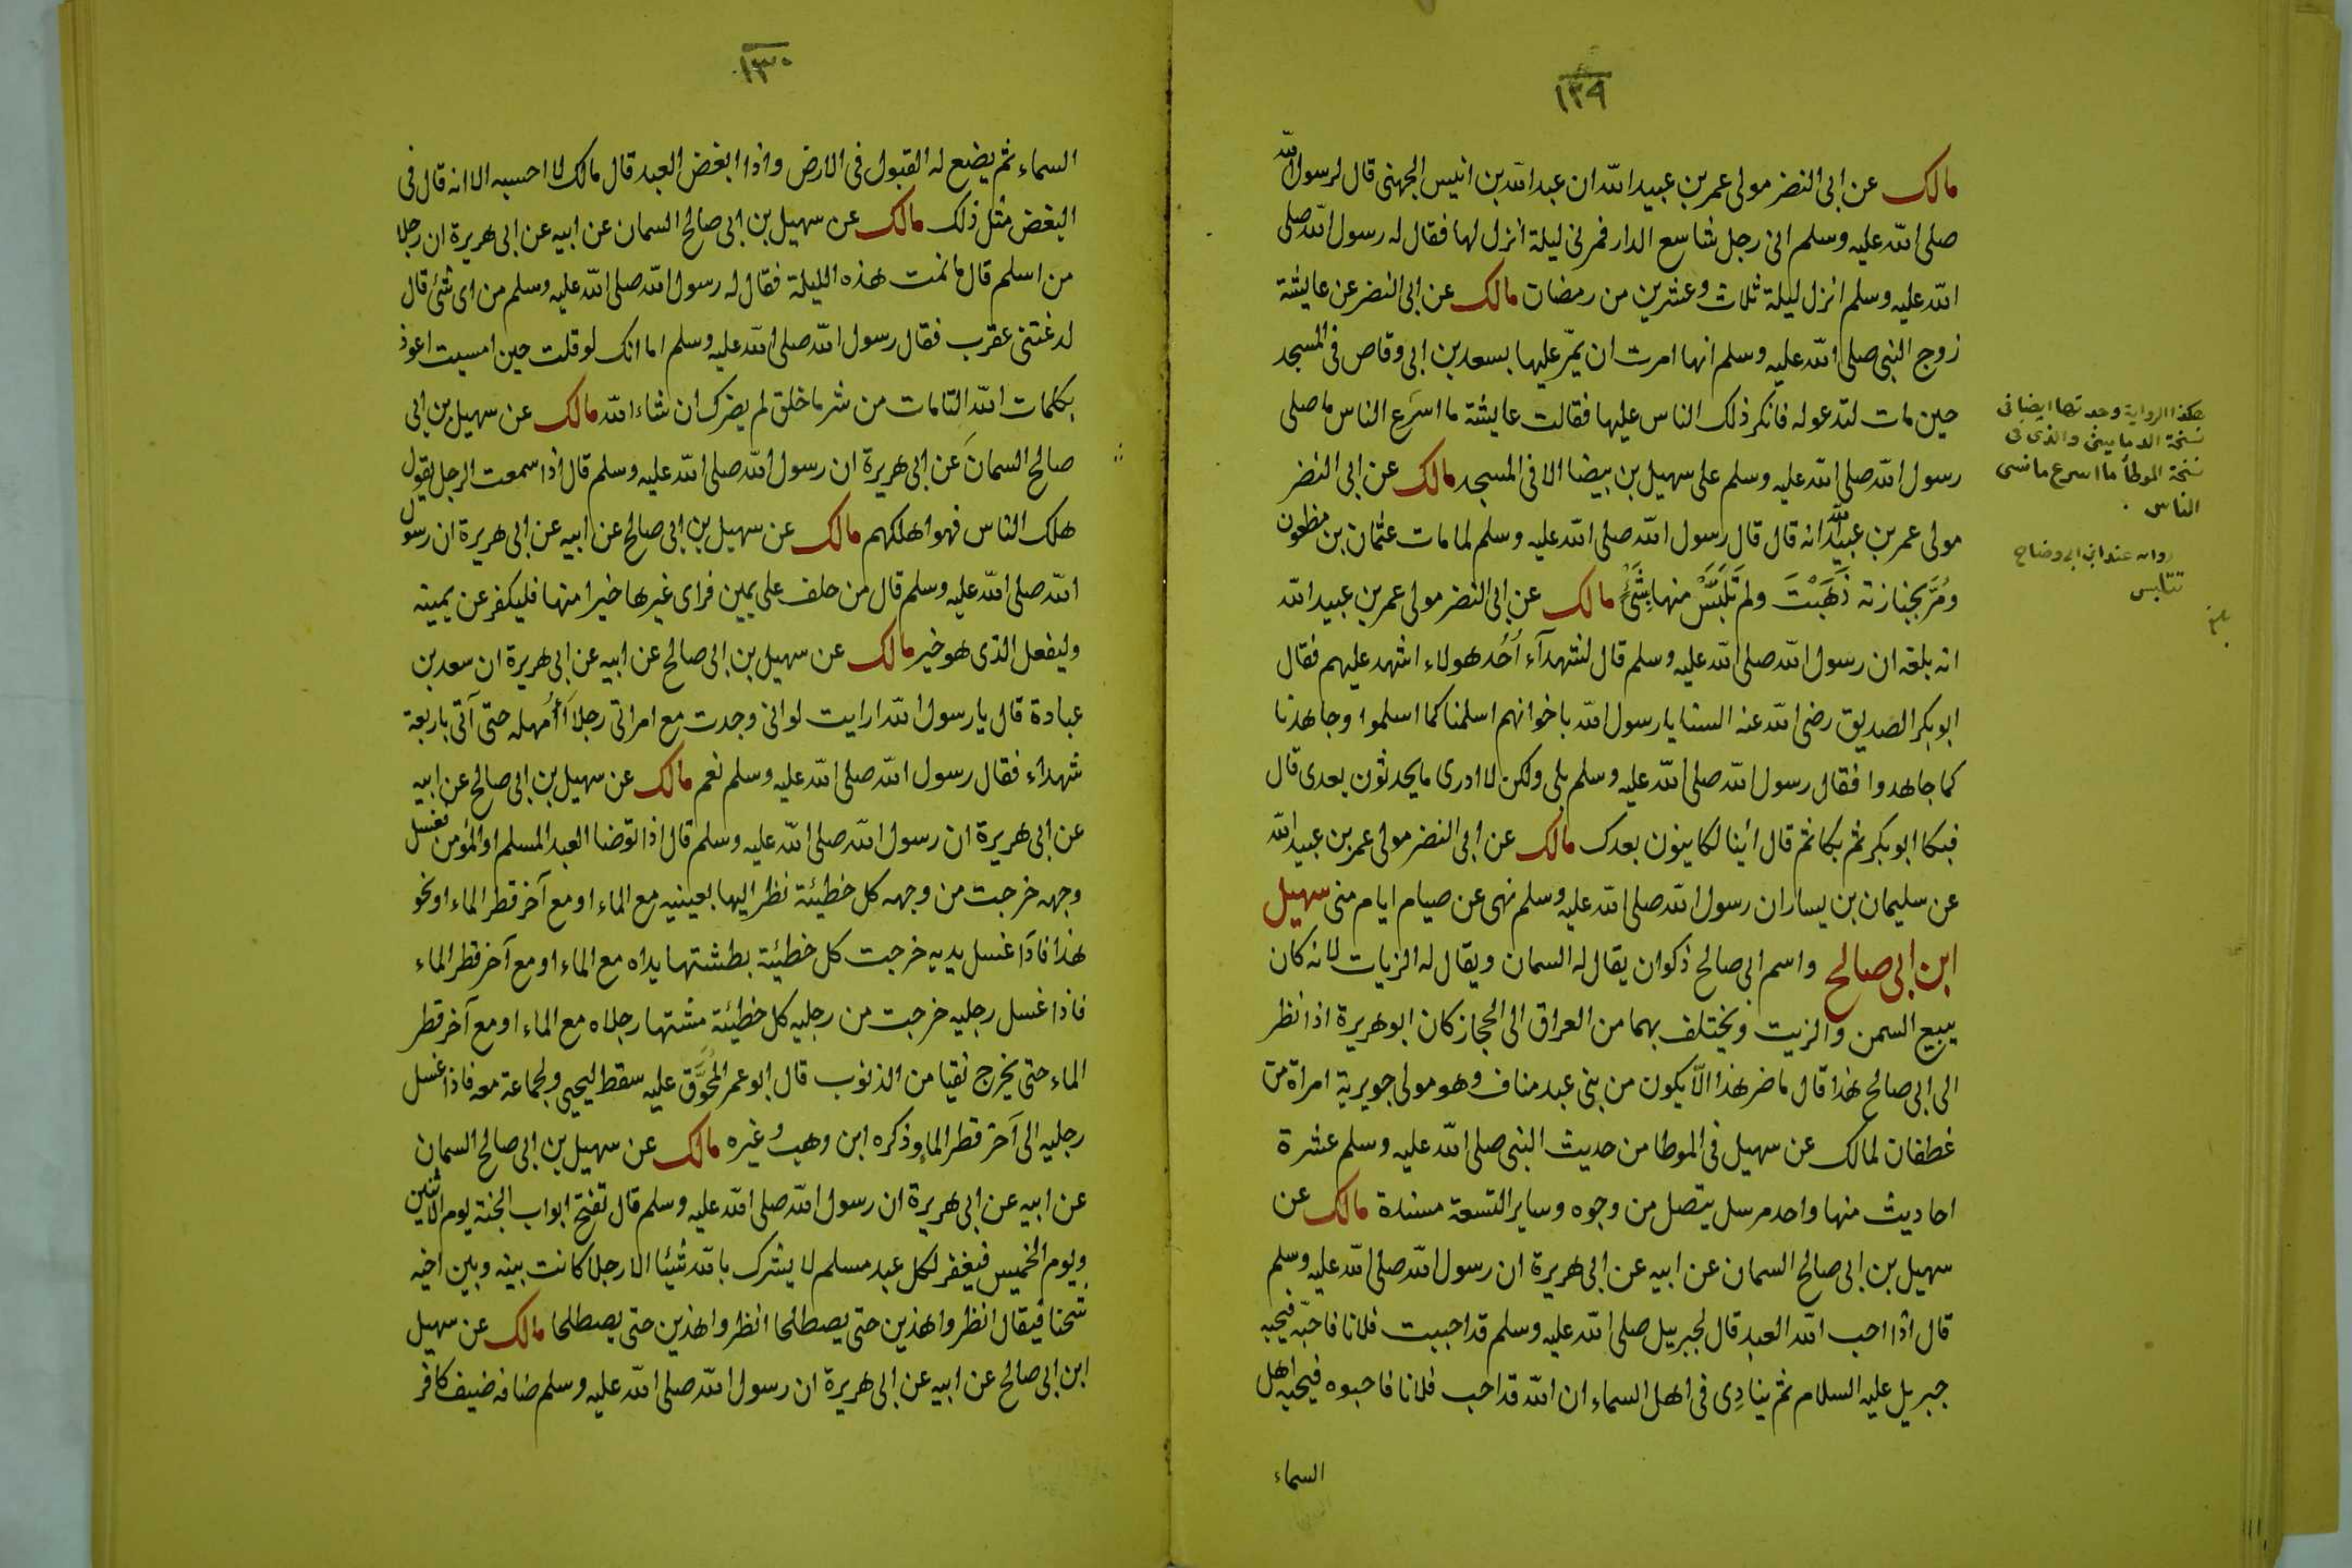 ١٢٩
مالك عن ابى النضر مولى عمر بن عبيد الله ان عبد الله بن انيس الجهنى قال لرسول الله
صلى الله عليه وسلم انى رجل شاسع الدار فمرنى ليلة انزل لها فقال له رسول الله صلى
الله عليه وسلم انزل ليلة ثلاث وعشرين من رمضان مالك عن ابى النضر عن عايشة
زوج النبى صلى الله عليه وسلم انها امرت ان يمّر عليها بسعد بن ابى وقاص فى المسجد
حين مات لتدعو له فانكر ذلك الناس عليها فقالت عايشة ما اسرع الناس ما صلى
رسول الله صلى الله عليه وسلم على سهيل بن بيضا الا فى المسجد مالك عن ابى النضر
مولى عمر بن عبيد الله انه قال قال رسول الله صلى الله عليه وسلم لما مات عثمان بن مظعون
ومُرَّ بجنازته ذَهَبْتَ ولم تَلَبَّسْ منها بِشَىْءٍ مالك عن ابى النضر مولى عمر بن عبيد الله
انه بلغه ان رسول الله صلى الله عليه وسلم قال لشهدآء اُحُد هولاء اشهد عليهم فقال
ابو بكر الصديق رضى الله عنه السنا يا رسول الله باخوانهم اسلمنا كما اسلموا وجاهدنا
كما جاهدوا فقال رسول الله صلى الله عليه وسلم بلى ولكن لا ادرى ما يحدثون بعدى قال
فبكا ابو بكر ثم بكا ثم قال أينا لكاينون بعدك مالك عن ابى النضر مولى عمر بن عبيد الله
عن سليمان بن يسار ان رسول الله صلى الله عليه وسلم نهى عن صيام ايام منى سهيل
ابن ابى صالح واسم ابى صالح ذكوان يقال له السمان ويقال له الزيات لانه كان
يبيع السمن والزيت ويختلف بهما من العراق الى الحجاز كان ابو هريرة اذا نظر
الى ابى صالح هذا قال ما ضر هذا الّا يكون من بنى عبد مناف وهو مولى جويرية امراة من
غطفان لمالك عن سهيل فى الموطا من حديث النبى صلى الله عليه وسلم عشرة
احاديث منها واحد مرسل يتصل من وجوه وساير التسعة مسندة مالك عن
سهيل بن ابى صالح السمان عن ابيه عن ابى هريرة ان رسول الله صلى الله عليه وسلم
قال اذا احب الله العبد قال لجبريل صلى الله عليه وسلم قد احببت فلانا فاحبّه فيحبه
جبريل عليه السلام ثم ينادِى فى اهل السماء ان الله قد احب فلانا فاحبوه فيحبه اهل
السماء
هكذا الرواية وجدتها ايضا فى
نسخة الدمامينى والذى فى
نسخة الموطأ ما اسرع ما نسى
الناس
عند ابن وضاح
تتلبس
١٣٠
السماء ثم يضع له القبول فى الارض واذا ابغض العبد قال مالك لا احسبه الا انه قال فى
البغض مثل ذلك مالك عن سهيل بن ابى صالح السمان عن ابيه عن ابى هريرة ان رجلا
من اسلم قال ما نمت هذه الليلة فقال له رسول الله صلى الله عليه وسلم من اى شئ قال
لدغتنى عقرب فقال رسول الله صلى الله عليه وسلم اما انك لو قلت حين امسيت اعوذ
بكلمات الله التامات من شر ما خلق لم يضرك ان شاء الله مالك عن سهيل بن ابى
صالح السمان عن ابى هريرة ان رسول الله صلى الله عليه وسلم قال اذا سمعت الرجل يقول
هلك الناس فهو اهلكهم مالك عن سهيل بن ابى صالح عن ابيه عن ابى هريرة ان رسول
الله صلى الله عليه وسلم قال من حلف على يمين فراى غيرها خيرا منها فليكفر عن يمينه
وليفعل الذى هو خير مالك عن سهيل بن ابى صالح عن ابيه عن ابى هريرة ان سعد بن
عبادة قال يا رسول الله ارايت لو انى وجدت مع امراتى رجلا أَأُمهله حتى آتى باربعة
شهداء فقال رسول الله صلى الله عليه وسلم نعم مالك عن سهيل بن ابى صالح عن ابيه
عن ابى هريرة ان رسول الله صلى الله عليه وسلم قال اذا توضا العبد المسلم او المؤمن فغسل
وجهه خرجت من وجهه كل خطيئة نظر اليها بعينيه مع الماء او مع آخر قطر الماء او نحو
هذا فاذا غسل يديه خرجت كل خطيئة بطشتها يداه مع الماء او مع آخر قطر الماء
فاذا غسل رجليه خرجت من رجليه كل خطيئة مشتها رجلاه مع الماء او مع آخر قطر
الماء حتى يخرج نقيا من الذنوب قال ابو عمر المُحوَّق عليه سقط ليحيى ولجماعة معه فاذا غسل
رجليه الى آخر قطر الماء وذكره ابن وهب وغيره مالك عن سهيل بن ابى صالح السمان
عن ابيه عن ابى هريرة ان رسول الله صلى الله عليه وسلم قال تفتح ابواب الجنة يوم الاثنين
ويوم الخميس فيغفر لكل عبد مسلم لا يشرك بالله شيئا الا رجلا كانت بينه وبين اخيه
شحنا فيقال انظروا هذين حتى يصطلحا انظروا هذين حتى يصطلحا مالك عن سهيل
ابن ابى صالح عن ابيه عن ابى هريرة ان رسول الله صلى الله عليه وسلم ضافه ضيف كافر